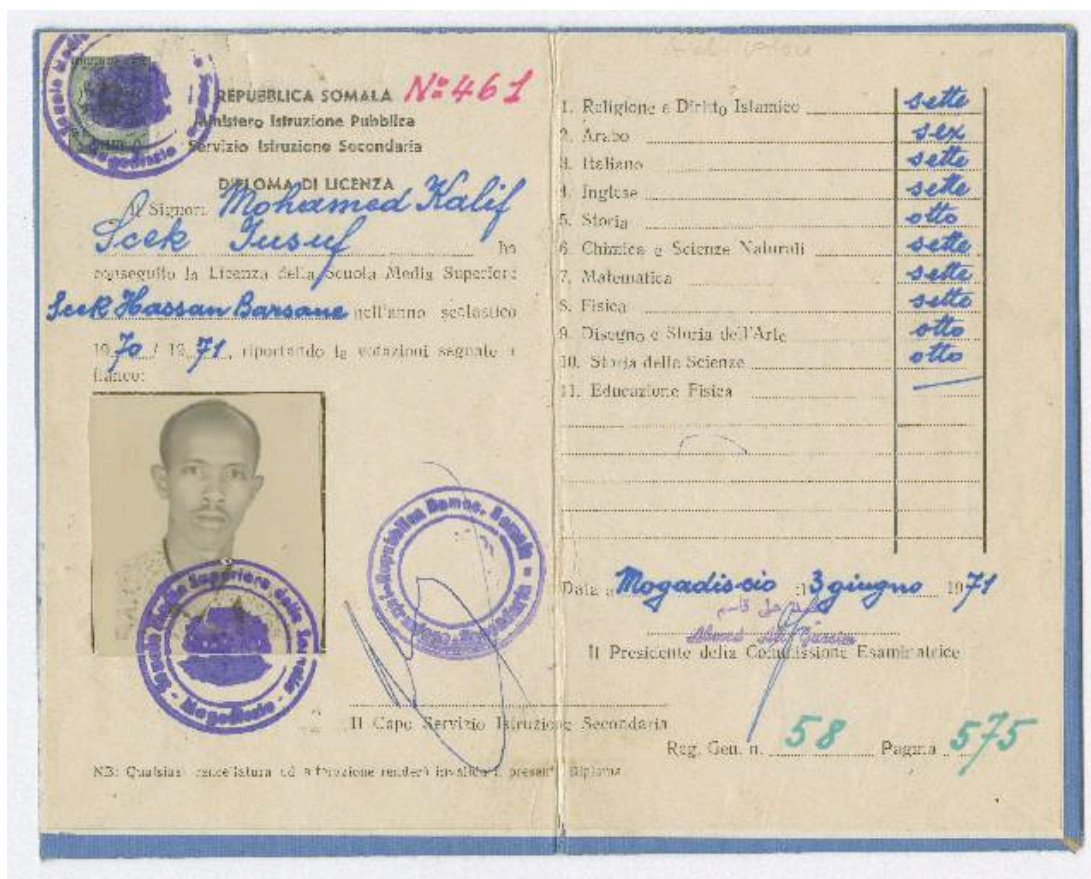 REPUBBLICA SOMALA Nº 461
Ministero Istruzione Pubblica
Servizio Istruzione Secondaria
DIPLOMA DI LICENZA
Il Signor: Mohamed Kalif
Scek Iusuf ha
conseguito la Licenza della Scuola Media Superiore
Scek Hassan Barsane nell'anno scolastico
1970 / 1971, riportando le votazioni segnate a
fianco:
Repubblica Democ. Somala
Scuola Media Superiore della Somalia - Mogadiscio
Il Capo Servizio Istruzione Secondaria
NB: Qualsiasi cancellatura od alterazione renderà invalido il presente Diploma
1. Religione e Diritto Islamico sette
2. Arabo sex
3. Italiano sette
4. Inglese sette
5. Storia otto
6. Chimica e Scienze Naturali sette
7. Matematica sette
8. Fisica sette
9. Disegno e Storia dell'Arte otto
10. Storia delle Scienze otto
11. Educazione Fisica —
Data a Mogadiscio il 3 giugno 1971
Il Presidente della Commissione Esaminatrice
Reg. Gen. n. 58 Pagina 575